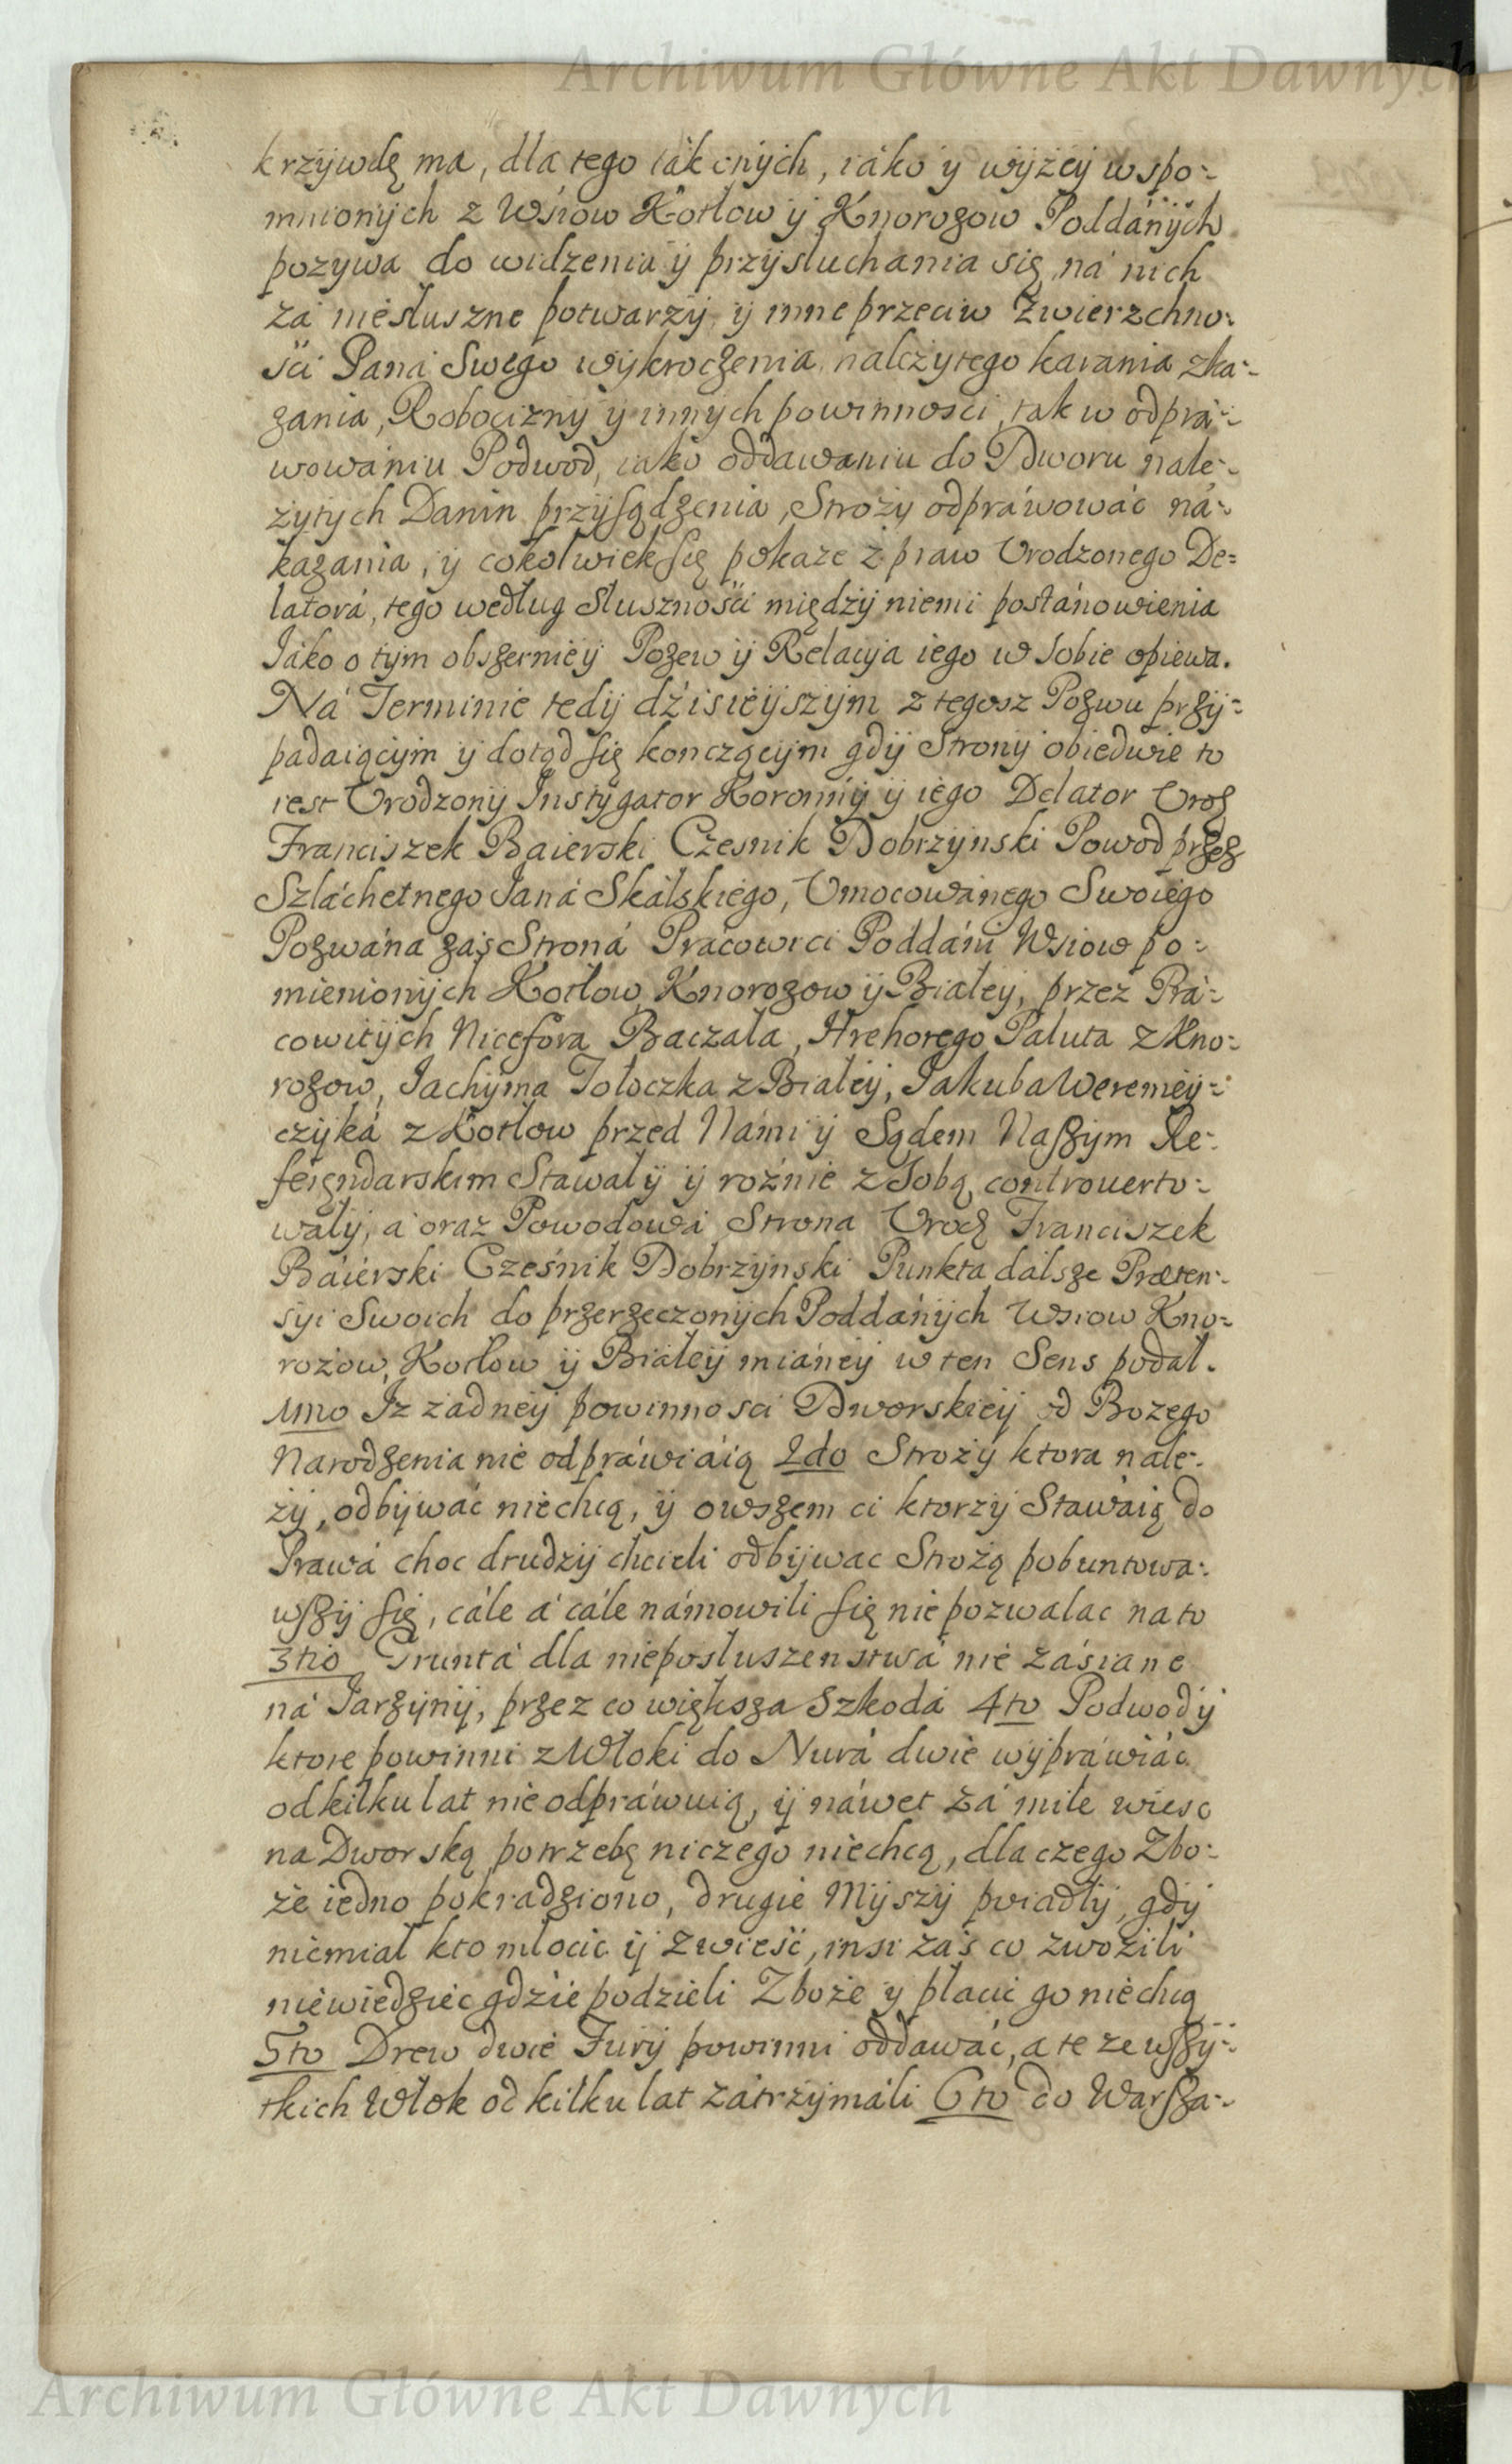 Archiwum Główne Akt Dawnych
krzywdę ma, dla tego ták onych, iáko y wyżey wspo-
mnionych z Wsiow Kotłow y Knorozow Poddánych
pozywa do widzenia y przysłuchania się ná nich
zá niesłuszne potwarzy y inne przeciw Zwierzchno-
ści Paná Swego wykroczenia należytego karania zka-
zania, Robocizny y innych powinności, tak w odprá-
wowániu Podwod, iáko oddawaniu do Dworu nale-
żytych Danin przysądzenia, Stroży odpráwowáć ná-
kazania, y cokolwiek się pokaże z praw Vrodzonego De=
latorá, tego według Słuszności między niemi postánowienia
Iáko o tym obszerniey Pozew y Relacya iego w sobie opiewa.
Ná Terminie tedy dźisieyszym z tegosz Pozwu przy=
padaiącym y dotąd się konczącym gdy Strony obiedwie to
iest Vrodzony Instygator Koronny y iego Delator Vroz
Franciszek Baierski Czesnik Dobrzynski Powod przez
Szláchetnego Janá Skálskiego, Vmocowánego Swoiego
Pozwána zaś Stroná Prácowici Poddáni Wsiow po-
mienionych Kotłow, Knorozow y Białey, przez Prá-
cowitych Nicefora Baczała, Hrehorego Paluta z Kno-
rozow, Jachyma Tołoczka z Białey, Jakuba Weremey-
czyká z Kotłow przed Námi y Sądem Naszym Re-
ferendarskim Stawały y rożnie z Sobą controverto-
wały, a oraz Powodowá Strona Vrodz Franciszek
Báierski Cześnik Dobrzynski Punkta dálsze Præten-
syi Swoich do przerzeczonych Poddánych Wsiow Kno-
rozow, Kotłow y Białey mianéy w ten Sens podał.
1mo Iz żadney powinnosci Dworskiey od Bozego
Narodzenia nie odpráwiáią 2do Stroży ktora nale-
ży, odbywać niechcą, y owszem ci ktorzy Stawáią do
Prawá choc drudzy chcieli odbywac Strożą pobuntowa-
wszy się, cále á cále námowili się nie pozwalac na to
3tio Gruntá dla nieposłuszenstwá nie zásiane
ná Jarzyny, przez co większa Szkodá 4to Podwody
ktore powinni z Włoki do Nurá dwie wypráwiác
od kilku lat nie odpráwuią, y náwet zá mile wiesc
na Dworską potrzebę niczego niechcą, dla czego Zbo-
że iedno pokradziono, drugie Myszy poiadły, gdy
niemiał kto młocic y zwieść, insi zaś co zwozili
niewiedziec gdzie podzieli Zboże y płacic go niechcą
5to Drew dwie Fury powinni oddawáć, a te ze wszy-
tkich Włok od kilku lat zátrzymáli 6to do Warsza-
Archiwum Główne Akt Dawnych